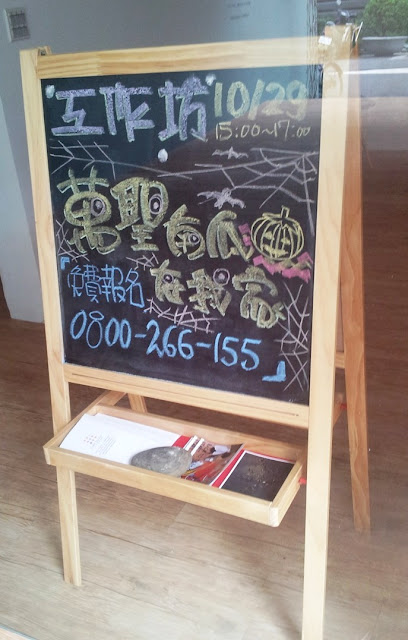 工作坊 10/29
15:00~17:00
萬聖南瓜
在我家
『免費報名
0800-266-155』